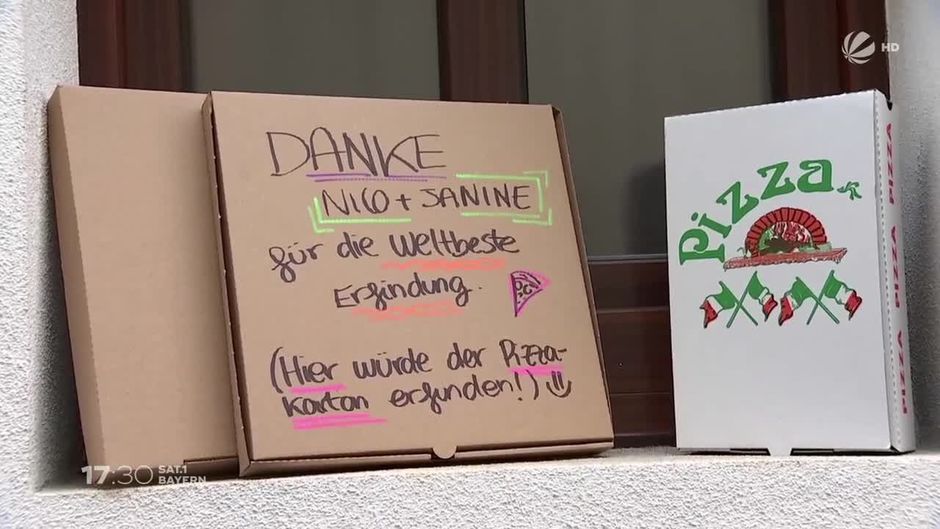 HD
DANKE
NICO + JANINE
für die Weltbeste
Erfindung.
(Hier würde der Pizza-
Karton erfunden!)
Pizza
PIZZA PIZZA PIZZA
17:30 SAT.1
BAYERN